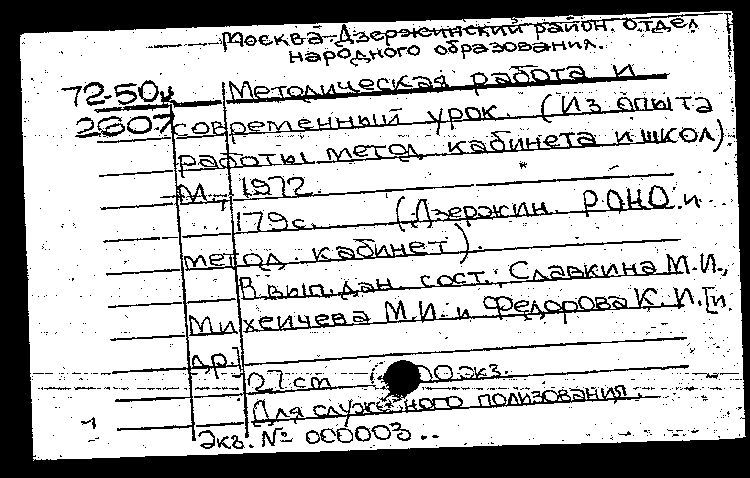 Москва-Дзержинский район. отдел
народного образования.
72-50м Методическая работа и
2607 современный урок. (Из опыта
работы метод. кабинета и школ).
М., 1972.
179с. (Дзержин. РОНО и
метод. кабинет).
В вып. дан. сост.: Славкина М.И.,
Михеичева М.И. и Федорова К.И. [и
др.]
27 cm 00 экз.
Для служебного пользования.
Экз. № 000003..